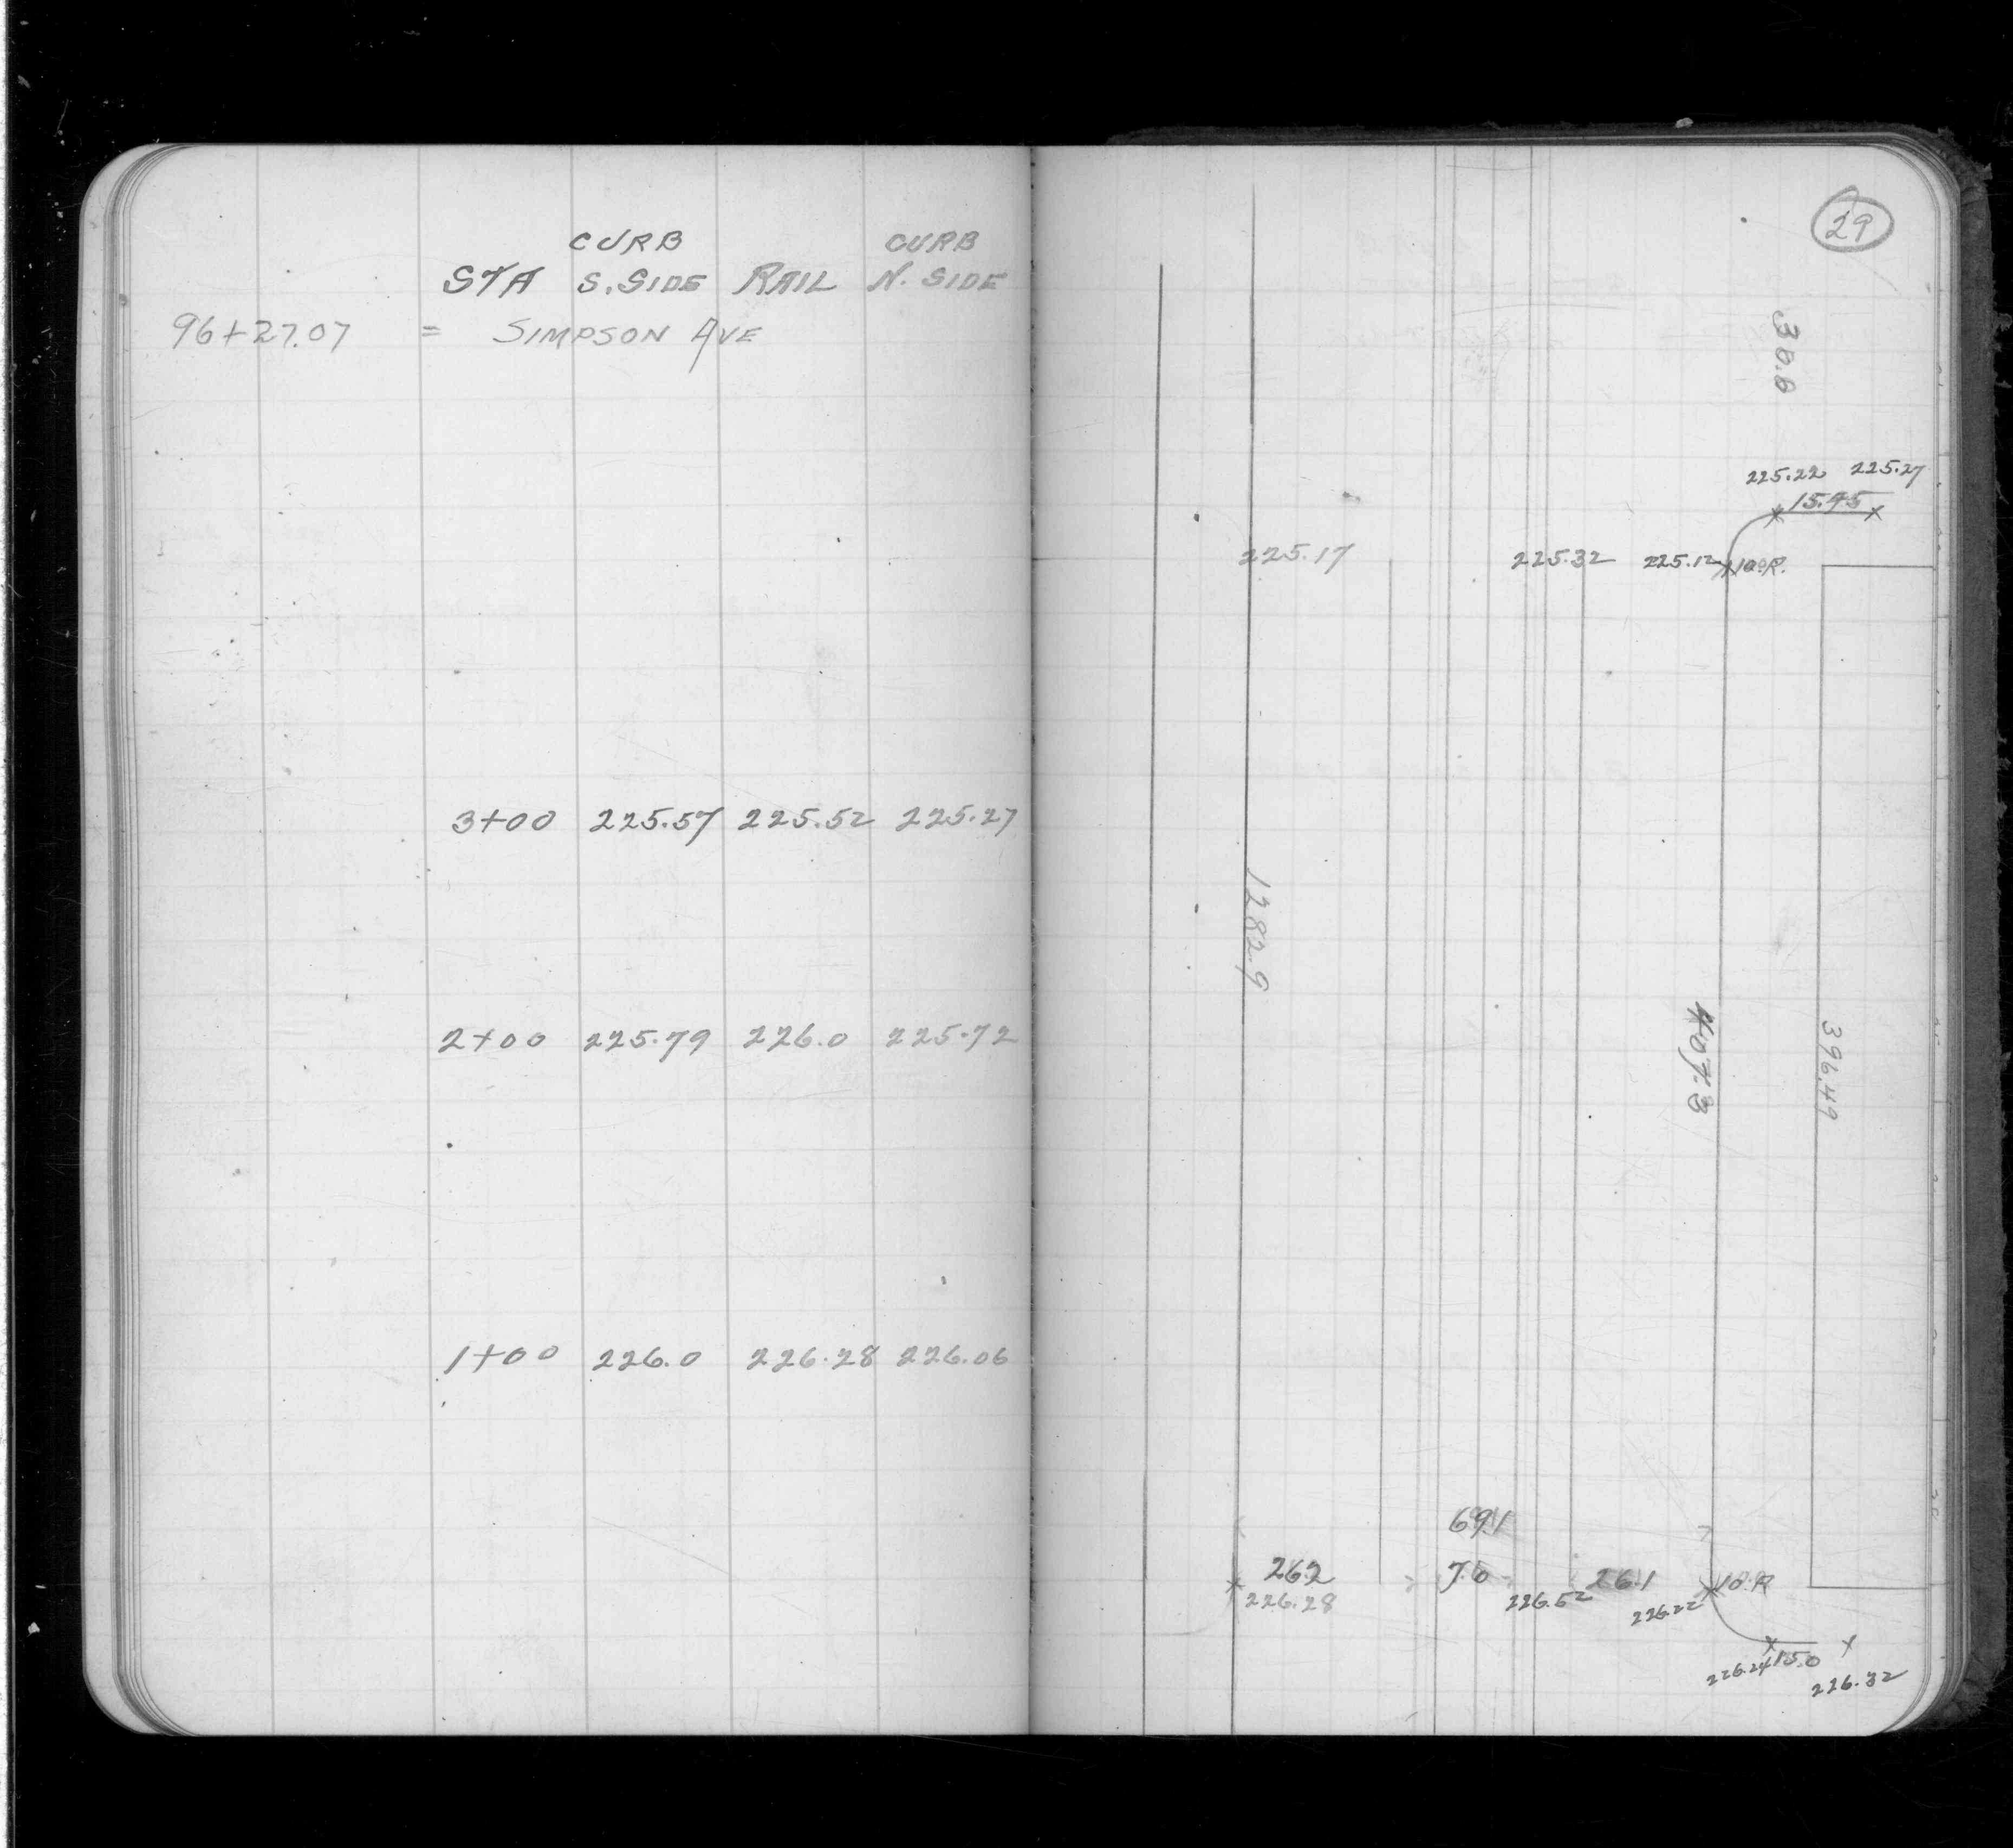 CURB CURB
STA S. SIDE RAIL N. SIDE
96+27.07 = SIMPSON AVE
3+00 225.57 225.52 225.27
2+00 225.79 226.0 225.72
1+00 226.0 226.28 226.06
29
30.0
225.22 225.27
15.95
225.17 225.32 225.12 10.R.
1282.9
407.3
396.49
69.1
26.2 7.6 26.1 10.R
226.28 226.52 226.22
226.24 15.0
226.32